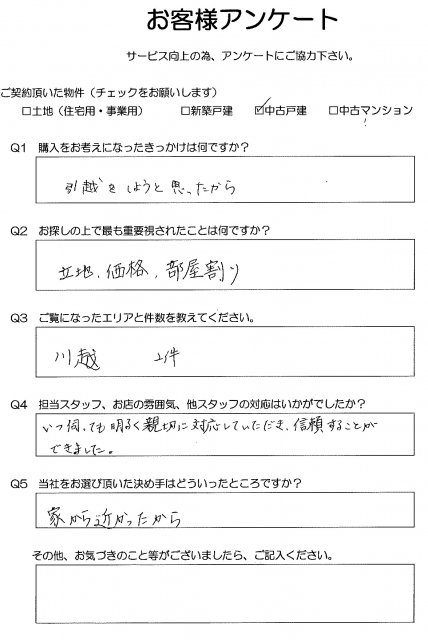 お客様アンケート
サービス向上の為、アンケートにご協力下さい。
ご契約頂いた物件（チェックをお願いします）
□土地（住宅用・事業用） □新築戸建 ☑中古戸建 □中古マンション
Q1 購入をお考えになったきっかけは何ですか？
引越をしようと思ったから
Q2 お探しの上で最も重要視されたことは何ですか？
立地、価格、部屋割り
Q3 ご覧になったエリアと件数を教えてください。
川越 2件
Q4 担当スタッフ、お店の雰囲気、他スタッフの対応はいかがでしたか？
いつ伺っても明るく親切に対応していただき、信頼することが
できました。
Q5 当社をお選び頂いた決め手はどういったところですか？
家から近かったから
その他、お気づきのこと等がございましたら、ご記入ください。